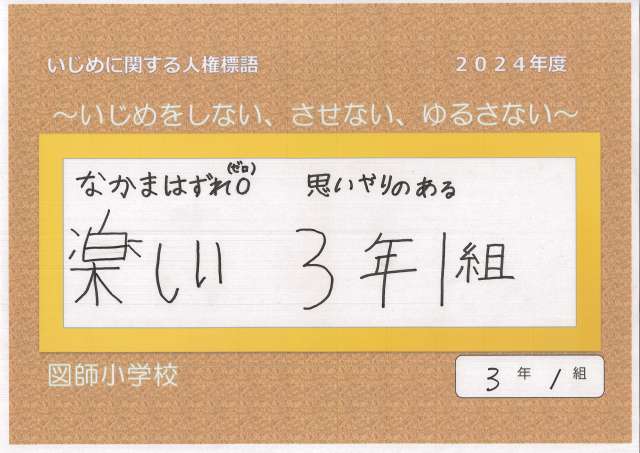 いじめに関する人権標語 2024年度
～いじめをしない、させない、ゆるさない～
なかまはずれ0(ゼロ) 思いやりのある
楽しい 3年1組
図師小学校
3年1組